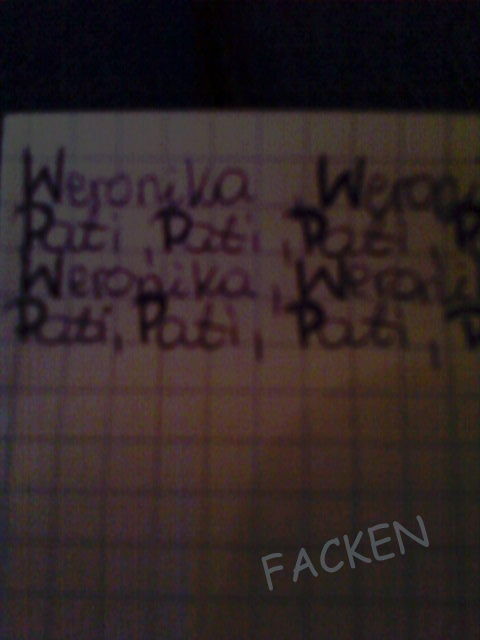 Weronika, Weroni
Pati, Pati, Pati, P
Weronika, Weronik
Pati, Pati, Pati, P
FACKEN